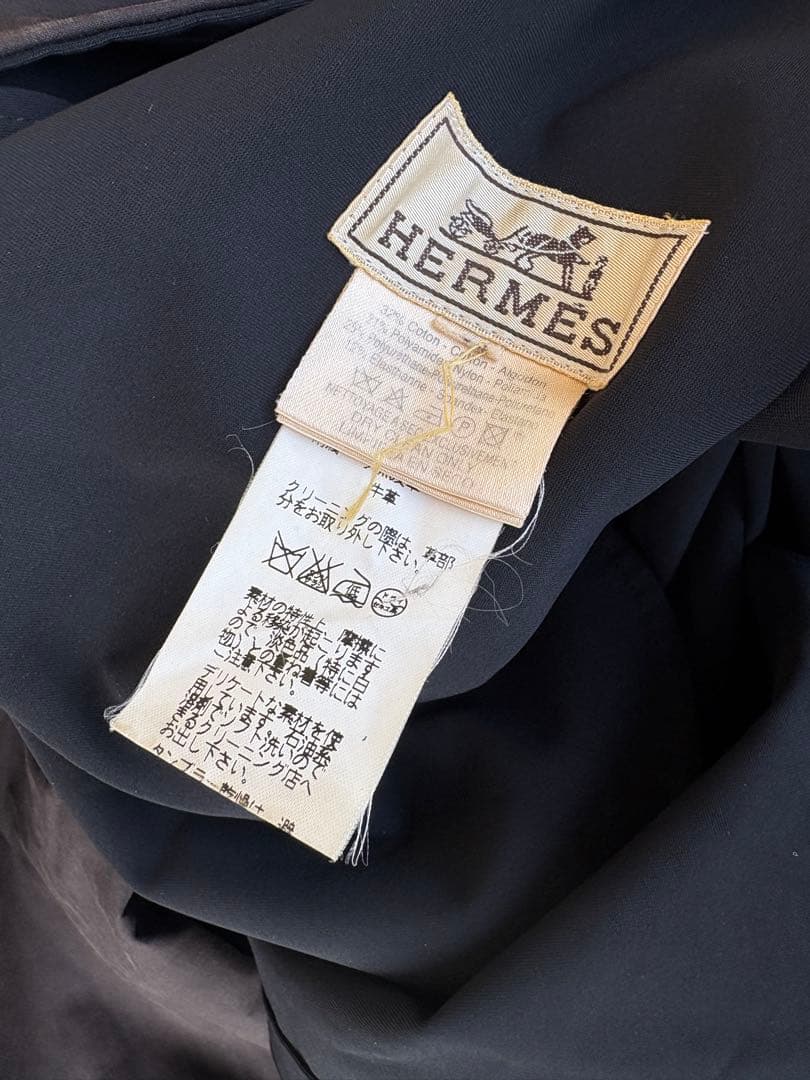 HERMÈS
32% Coton - Cotton - Algodon
31% Polyamide - Nylon - Poliamida
25% Polyurethane - Polyurethane - Poliuretano
12% Elasthanne - Spandex - Elastano
NETTOYAGE A SEC EXCLUSIVEMENT
DRY CLEAN ONLY
LIMPIEZA EN SECO
牛革
クリーニングの際は、革部
分をお取り外し下さい。
素材の特性上、摩擦に
よる移染が起こります
ので、淡色品(特に白
切)との重ね着等には
ご注意下さい。
デリケートな素材を使
用しています。石油
ソフト洗いので
きるクリーニング店へ
お出し下さい。
タンブラー乾燥は、避